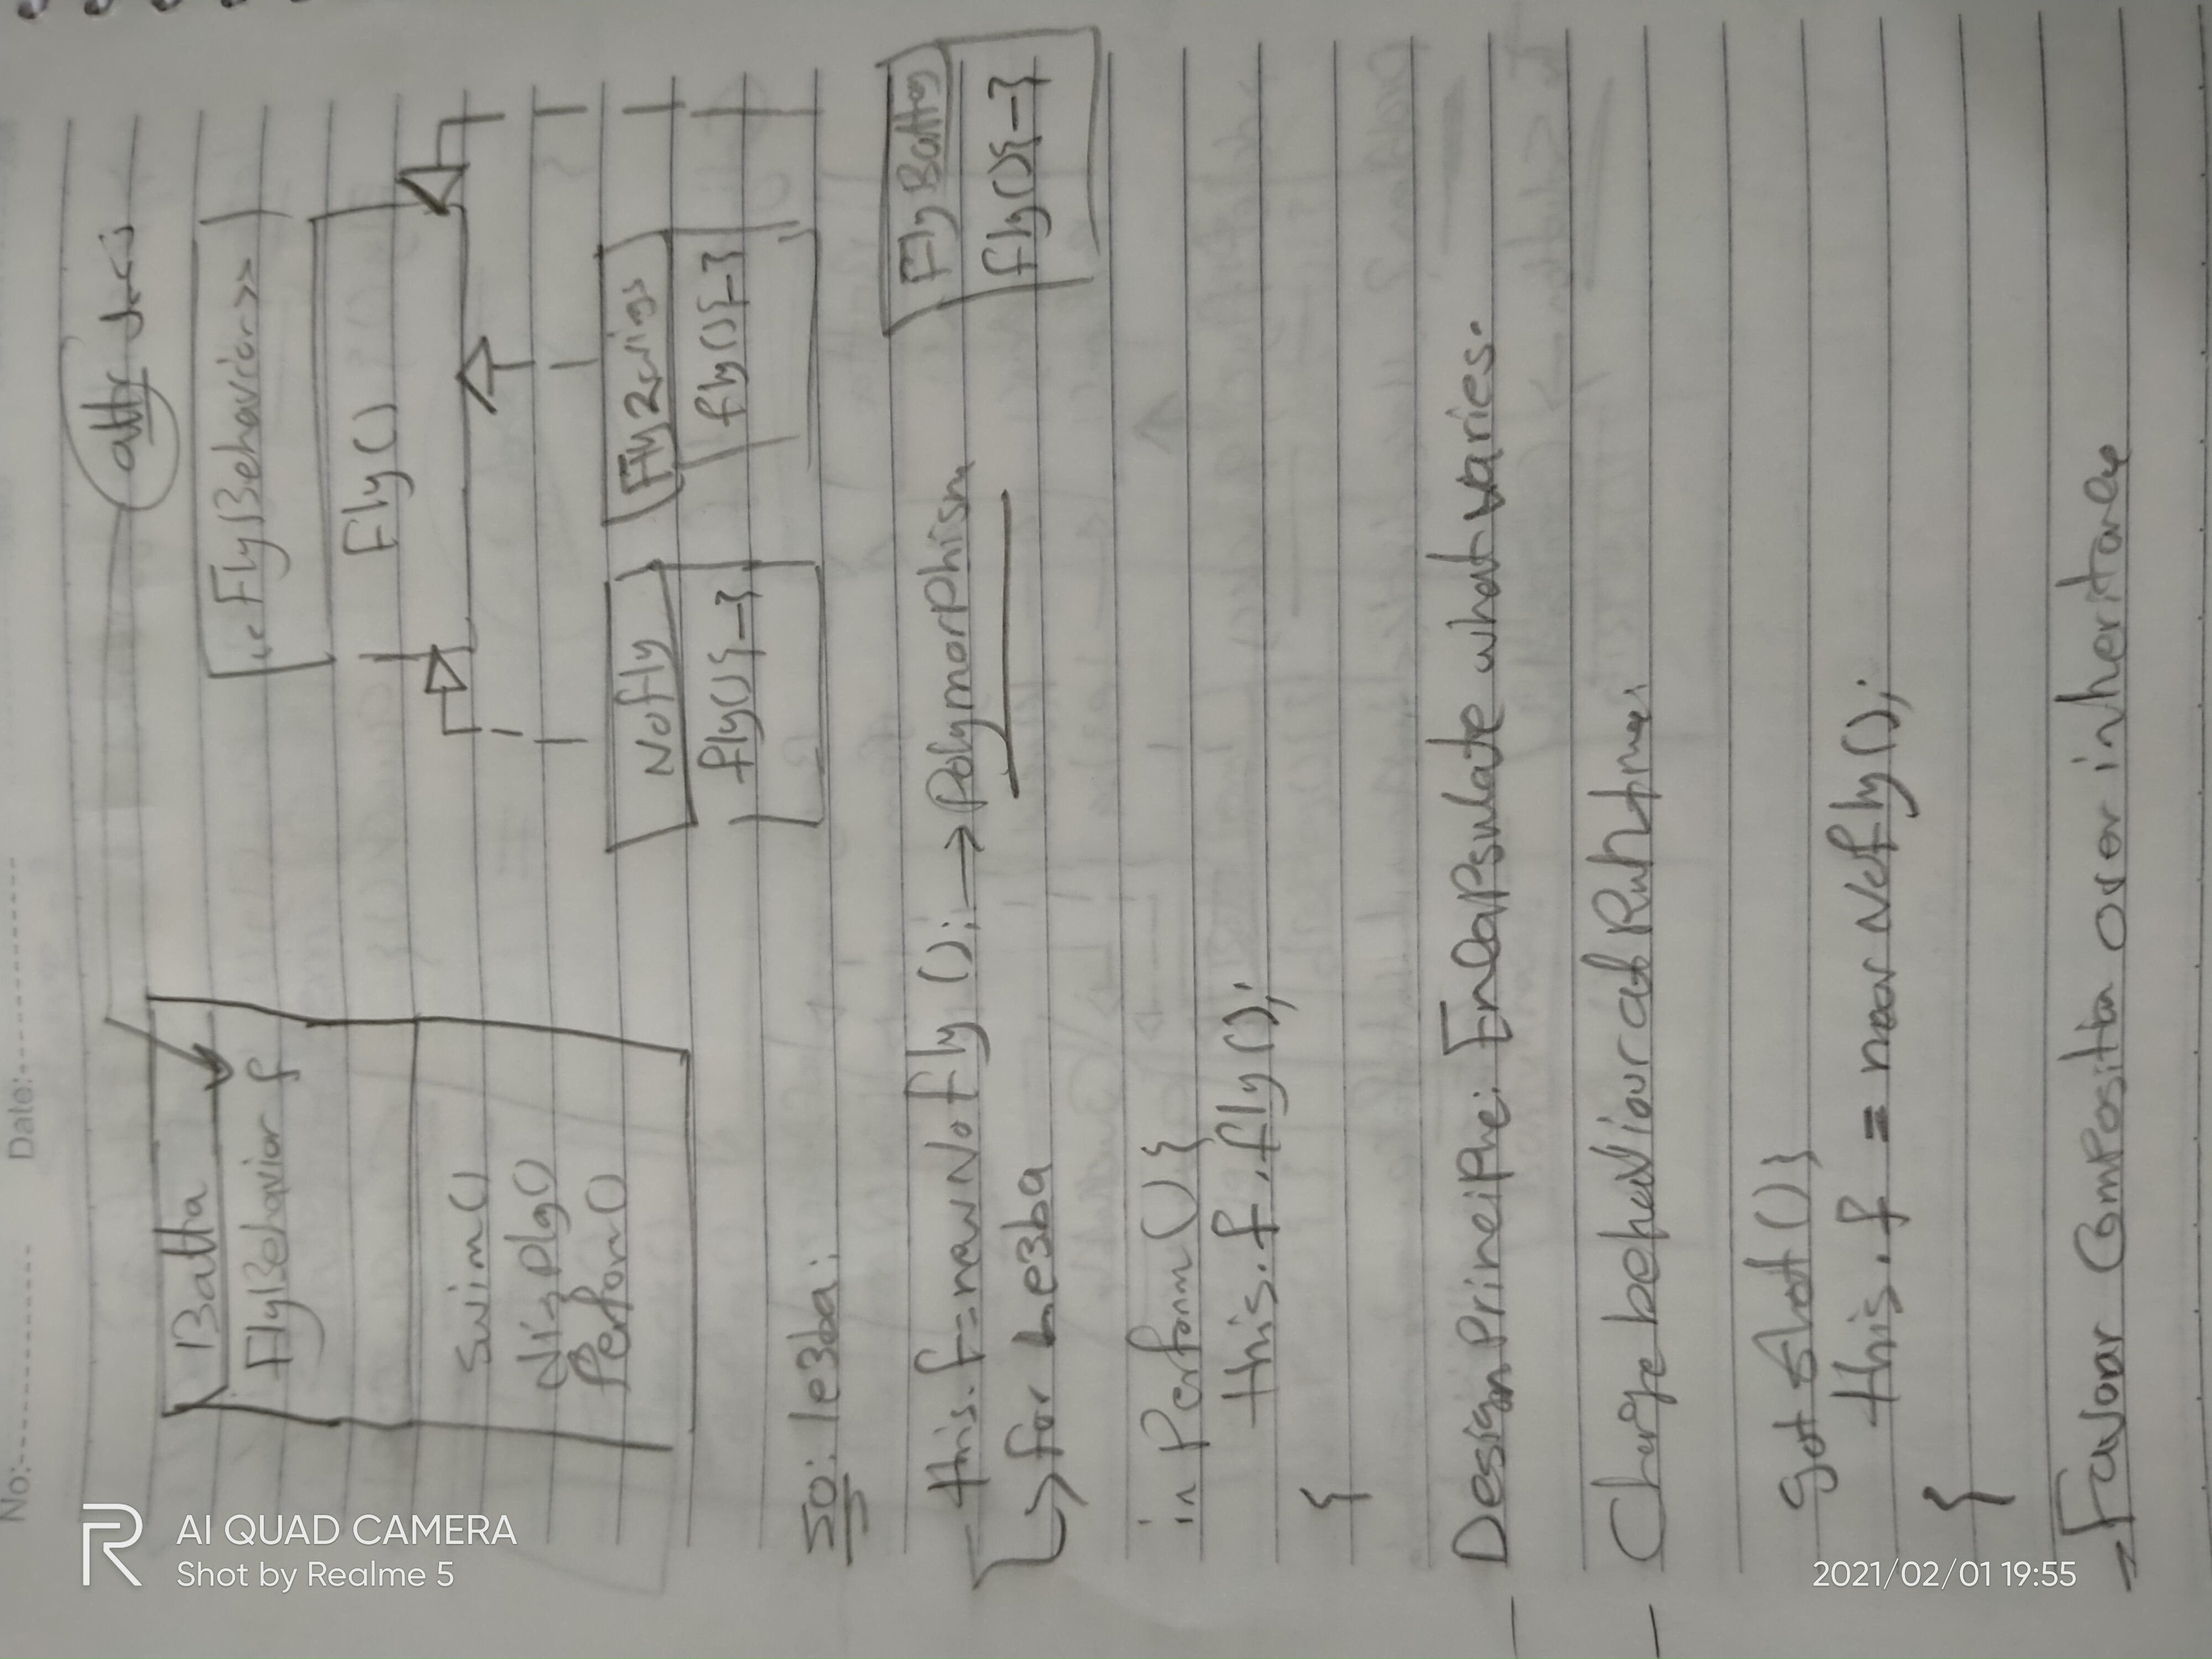 No:
Date:
attr نعمل
Batta
FlyBehavior f
swim()
display()
Perform()
<<FlyBehavior>>
Fly()
Nofly
fly(){–}
Fly2wigs
fly(){–}
Fly Battery
fly(){–}
So: le3ba:
this.f=new NoFly (); → Polymorphism
↳ for Le3ba
in Perform () {
this.f.fly();
{
— Design Principhe: Encapsulate what varies.
— Change behaviour at Runtime.
got shot () }
this.f = new Nofly();
{
= Favour Composition over inheritance
AI QUAD CAMERA
Shot by Realme 5
2021/02/01 19:55